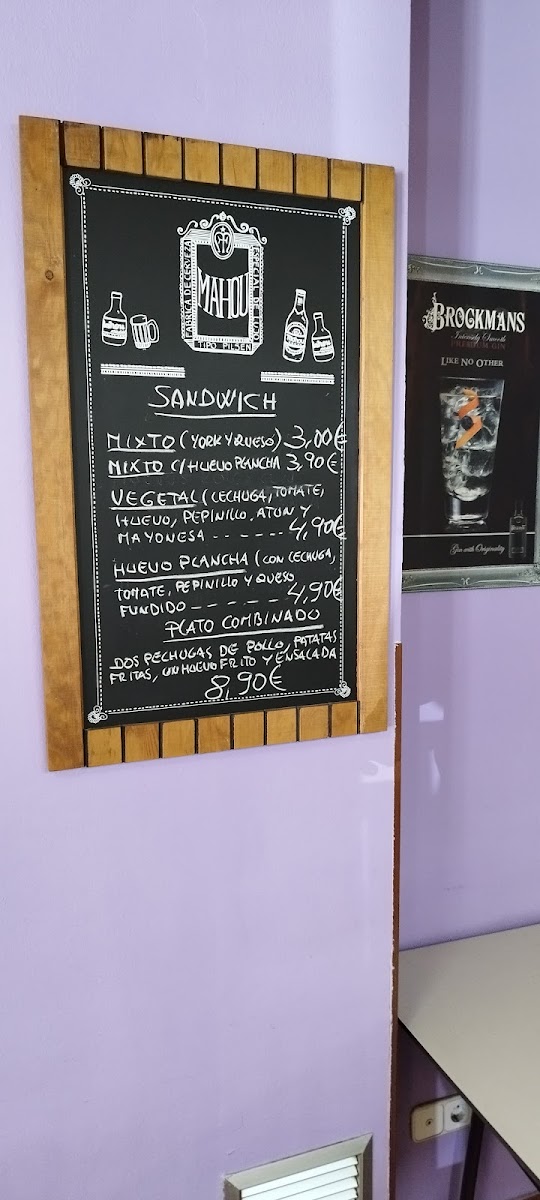 FABRICA DE CERVEZA
MAHOU
ESPECIAL DE LUJO
TIPO PILSEN
SANDWICH
MIXTO (YORK Y QUESO) 3,00€
MIXTO C/HUEVO PLANCHA 3,90€
VEGETAL (LECHUGA, TOMATE,
HUEVO, PEPINILLO, ATUN Y
MAYONESA ------- 4,90€
HUEVO PLANCHA (CON LECHUGA,
TOMATE, PEPINILLO Y QUESO
FUNDIDO -------- 4,90€
PLATO COMBINADO
DOS PECHUGAS DE POLLO, PATATAS
FRITAS, UN HUEVO FRITO Y ENSALADA
8,90€
BROCKMANS
Intensely Smooth
PREMIUM GIN
LIKE NO OTHER
Gin with Originality